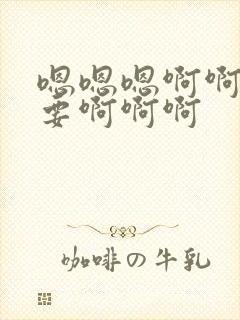 嗯嗯嗯啊啊
要啊啊啊
咖啡の牛乳